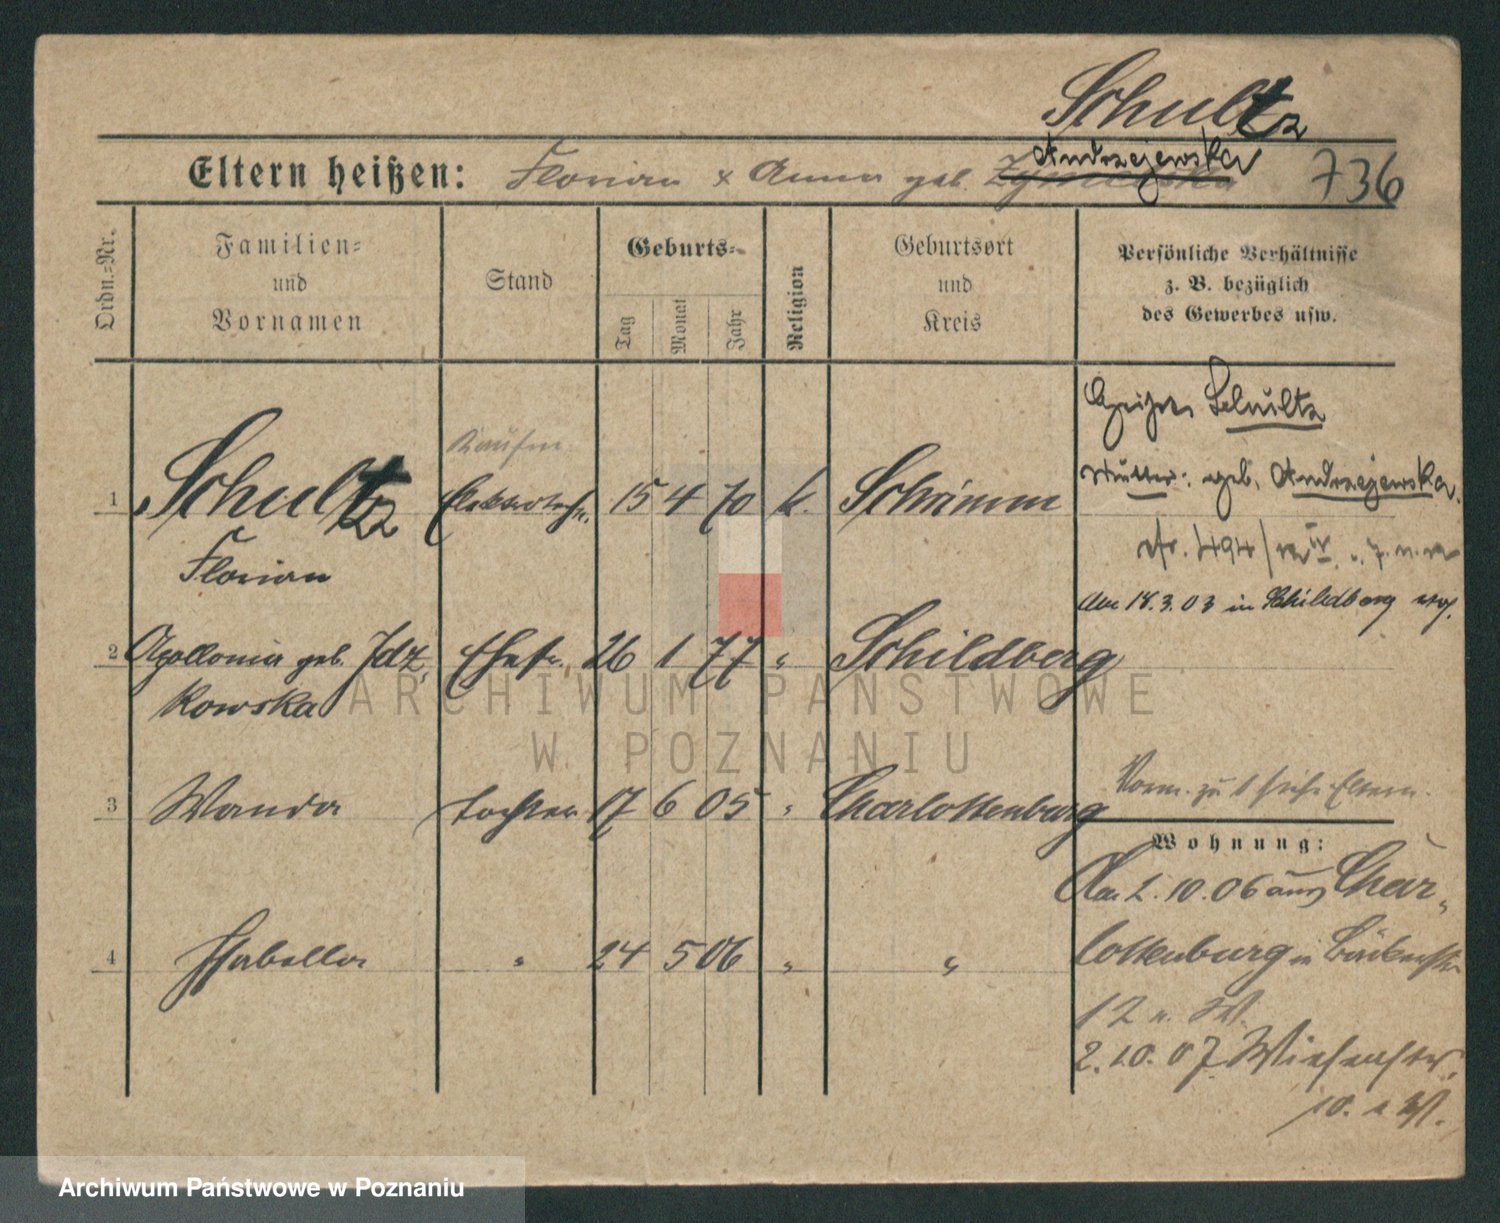 Schultz
Eltern heißen: Florian x Anna geb. Andrzejewska
736
Ordn.=Nr.
Familien=
und
Vornamen
Stand
Geburts=
Tag
Monat
Jahr
Religion
Geburtsort
und
Kreis
Persönliche Verhältnisse
z. B. bezüglich
des Gewerbes usw.
Schultz
Mutter: geb. Andrzejewska.
1 Schultz 15 4 70 k. Schrimm
Florian
Am 18.3.03 in Schildberg
2 Apollonia geb. Idz- Ehefr. 26 1 77 " Schildberg
kowska
3 Wanda Tochter 17 6 05 " Charlottenburg
Wohnung:
Am 2.10.06 aus Char-
4 Isabella " 24 5 06 " "
lottenburg
12 n. W.
2.10.07 Wiesenstr.
10.
ARCHIWUM PAŃSTWOWE
W POZNANIU
Archiwum Państwowe w Poznaniu